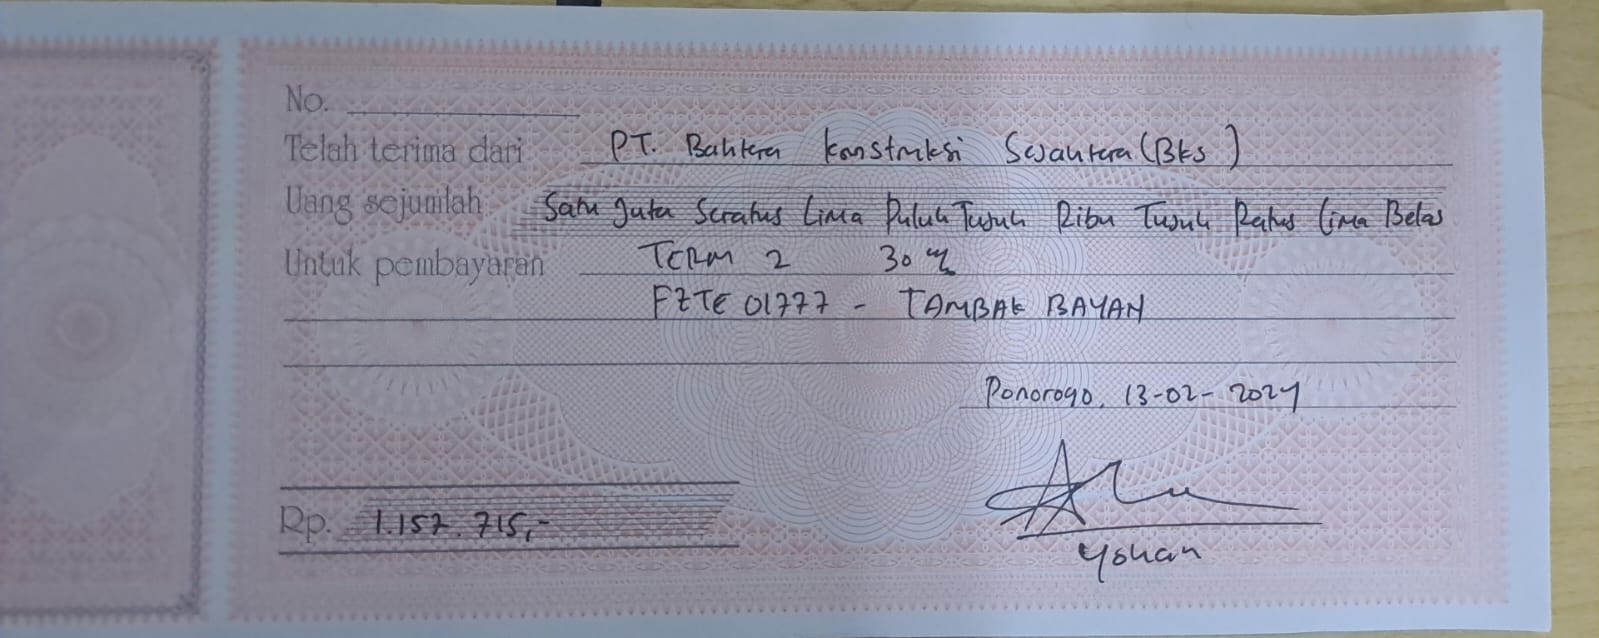 No.
Telah terima dari PT. Bahtera Konstruksi Sejahtera (BKS)
Uang sejumlah Satu Juta Seratus Lima Puluh Tujuh Ribu Tujuh Ratus Lima Belas
Untuk pembayaran TERM 2 30 %
FZTE 01777 - TAMBAK BAYAN
Ponorogo, 13-02-2024
Rp. 1.157.715,-
Yohan